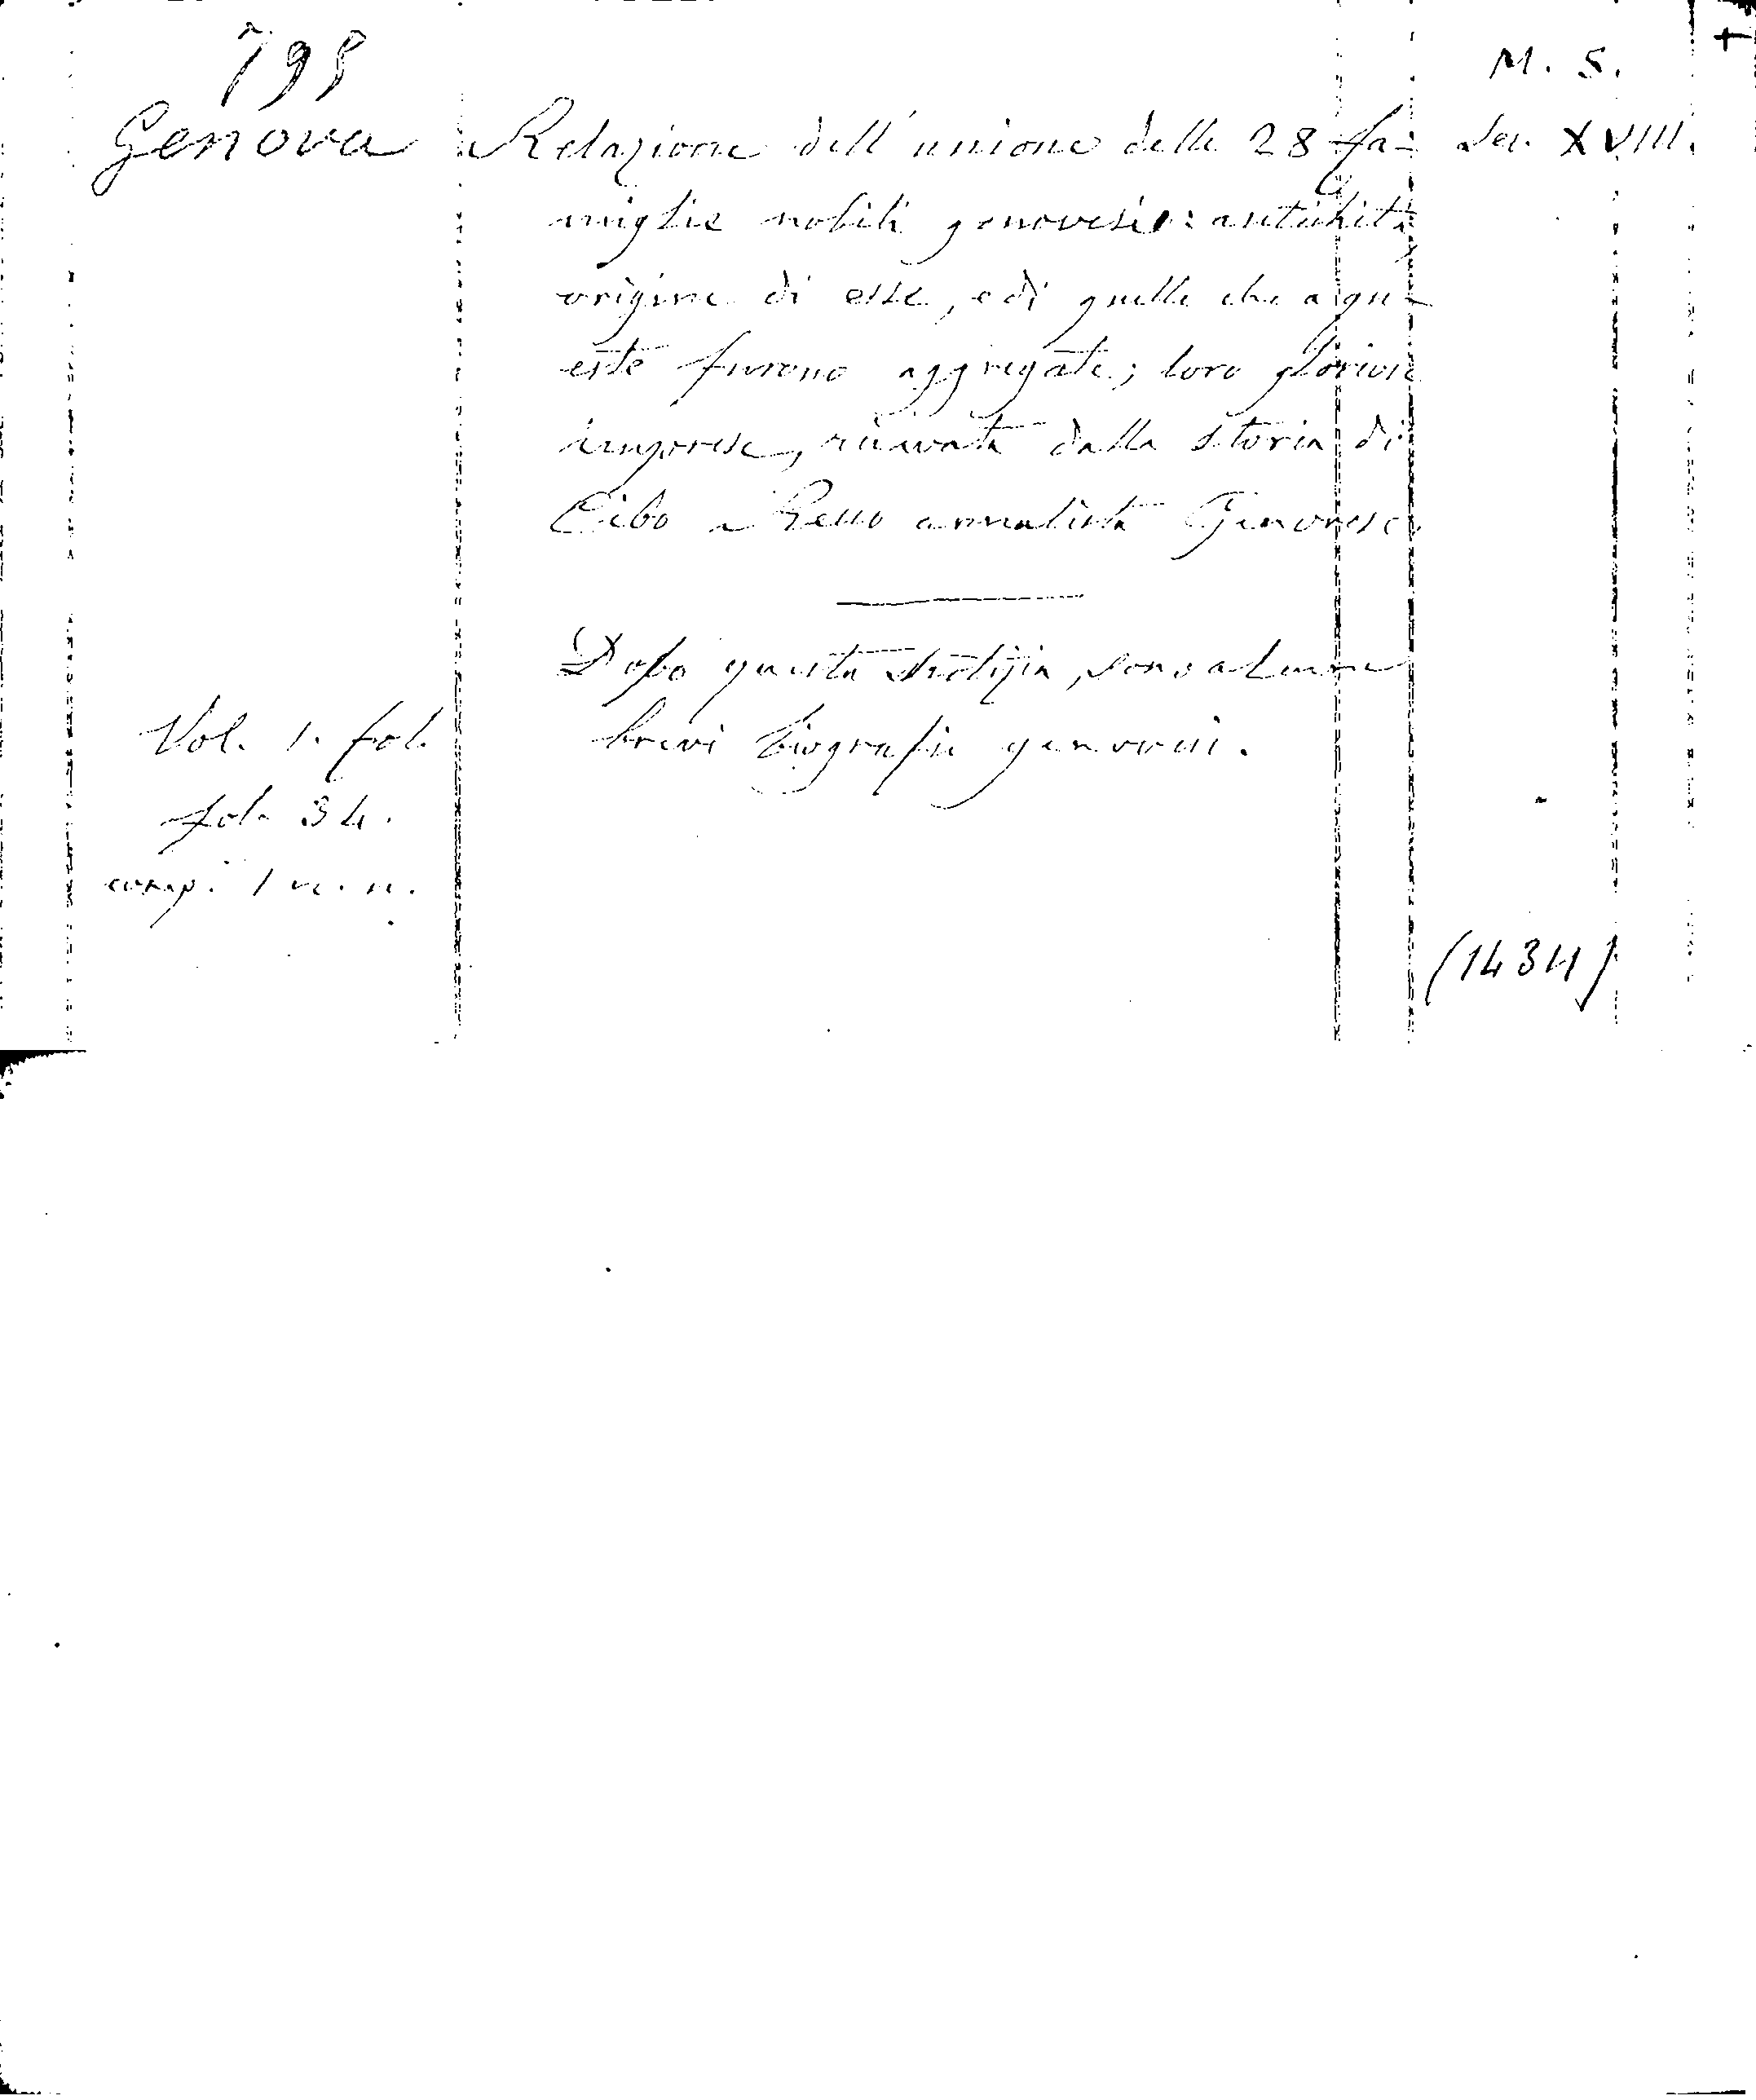 M. S.
Genova Relazione dell' unione delle 28 fa- Sec. XVIII.
miglie nobili genovesi: antichità
origine di esse, e di quelle che a qu-
este furono aggregate; loro gloriose
imprese, ricavata dalla storia di
Cibo a Recco annalista Genovese
Dopo questa notizia, sono alcune
Vol. 1. fol. brevi biografie genovesi.
fol. 34.
comp. 1 n. n.
(1434)